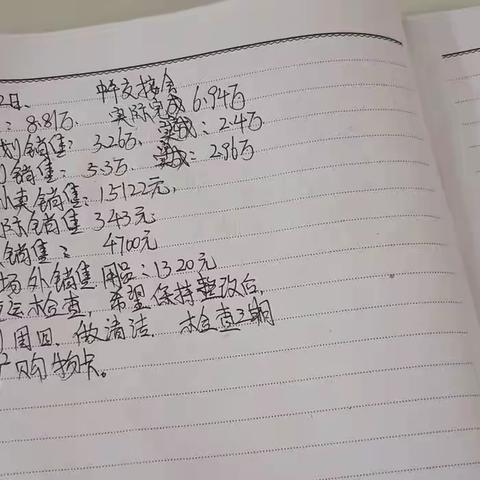 2日、 中午交接会
: 8.81万. 实际完成 6.94万
划销售: 3.26万. 实战: 2.4万
销售: 5.3万. 实战: 2.86万
销售: 15122元,
际销售 343元
销售: 4700元
场外销售 用品: 1320元
检查, 希望保持整改后,
周日、做清洁, 检查2期
购物卡。